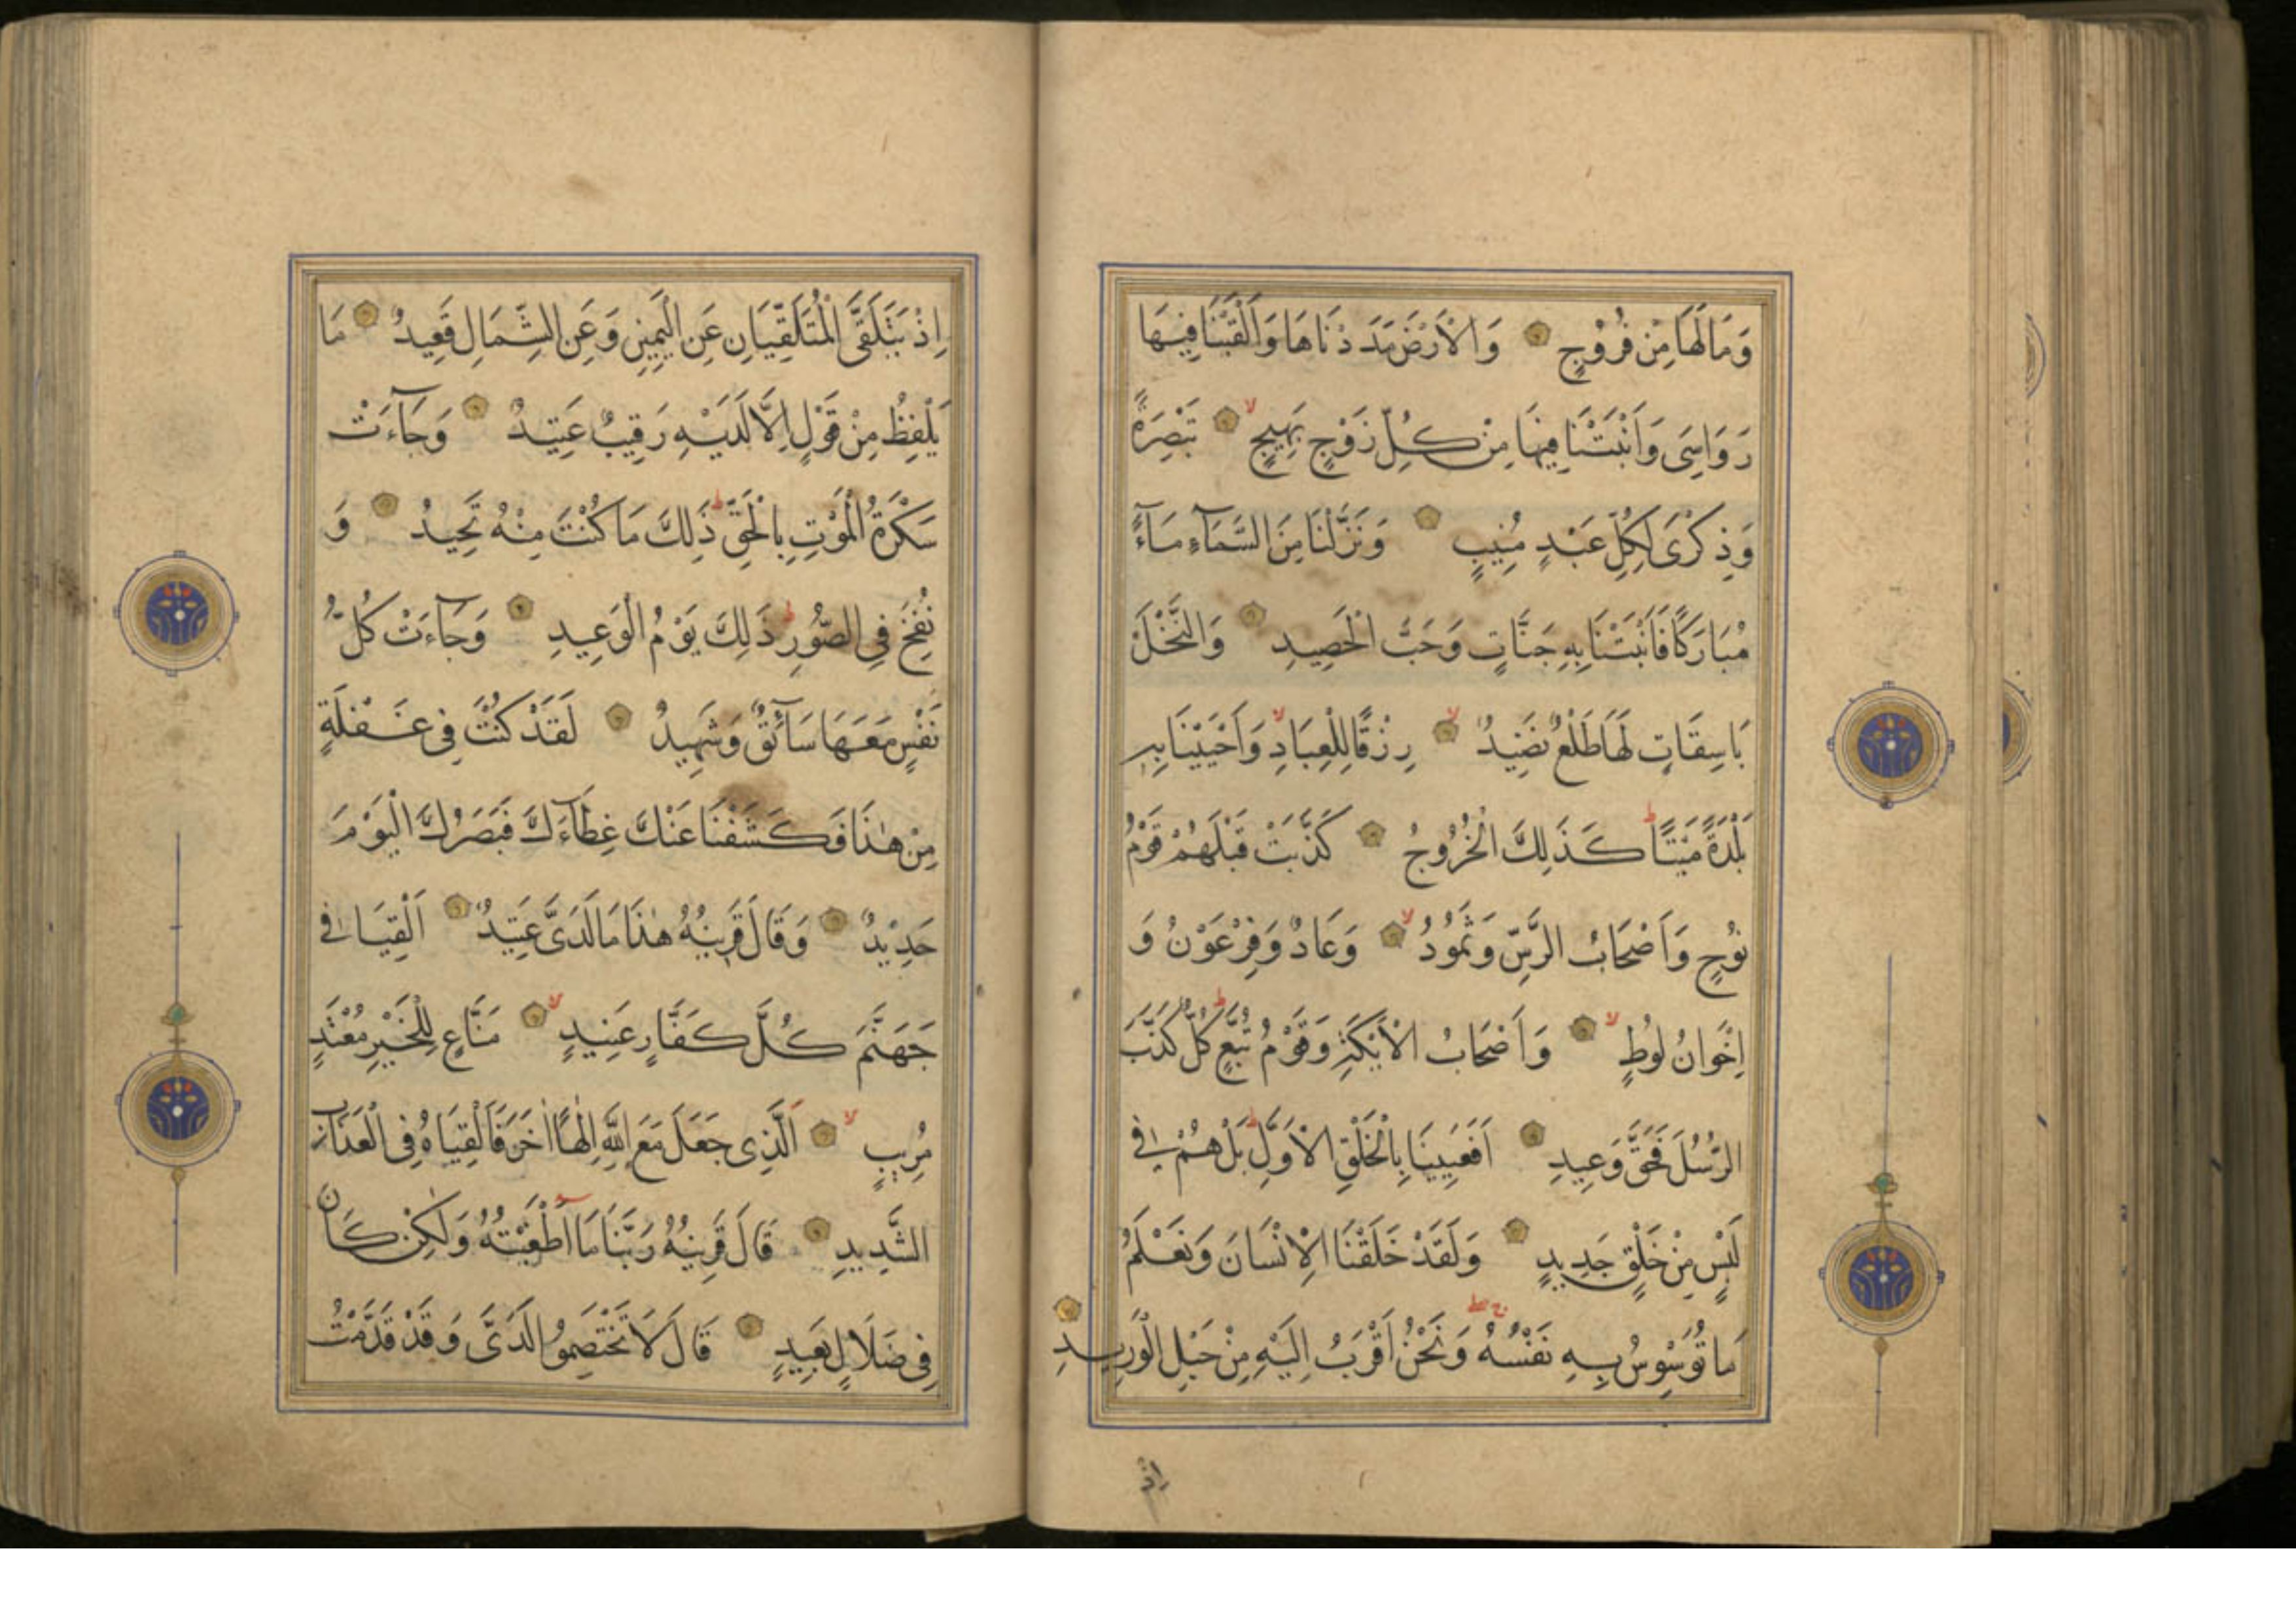 وَمَا لَهَا مِنْ فُرُوجٍ وَالْاَرْضَ مَدَدْنَاهَا وَاَلْقَيْنَا فِيهَا
رَوَاسِىَ وَاَنْبَتْنَا فِيهَا مِنْ كُلِّ زَوْجٍ بَهِيجٍ لا تَبْصِرَةً
وَذِكْرَى لِكُلِّ عَبْدٍ مُنِيبٍ وَنَزَّلْنَا مِنَ السَّمَآءِ مَآءً
مُبَارَكًا فَاَنْبَتْنَا بِهِ جَنَّاتٍ وَحَبَّ الْحَصِيدِ وَالنَّخْلَ
بَاسِقَاتٍ لَهَا طَلْعٌ نَضِيدٌ لا رِزْقًا لِلْعِبَادِ لا وَاَحْيَيْنَا بِهِ
بَلْدَةً مَيْتًا ط كَذَلِكَ الْخُرُوجُ كَذَّبَتْ قَبْلَهُمْ قَوْمُ
نُوحٍ وَاَصْحَابُ الرَّسِّ وَثَمُودُ لا وَعَادٌ وَفِرْعَوْنُ وَ
اِخْوَانُ لُوطٍ لا وَاَصْحَابُ الْاَيْكَةِ وَقَوْمُ تُبَّعٍ ط كُلٌّ كَذَّبَ
الرُّسُلَ فَحَقَّ وَعِيدِ اَفَعَيِينَا بِالْخَلْقِ الْاَوَّلِ ط بَلْ هُمْ فِى
لَبْسٍ مِنْ خَلْقٍ جَدِيدٍ وَلَقَدْ خَلَقْنَا الْاِنْسَانَ وَنَعْلَمُ
مَا تُوَسْوِسُ بِهِ نَفْسُهُ وَنَحْنُ اَقْرَبُ اِلَيْهِ مِنْ حَبْلِ الْوَرِيدِ
اِذْ
اِذْ يَتَلَقَّى الْمُتَلَقِّيَانِ عَنِ الْيَمِينِ وَعَنِ الشِّمَالِ قَعِيدٌ مَا
يَلْفِظُ مِنْ قَوْلٍ اِلَّا لَدَيْهِ رَقِيبٌ عَتِيدٌ وَجَآءَتْ
سَكْرَةُ الْمَوْتِ بِالْحَقِّ ط ذَلِكَ مَا كُنْتَ مِنْهُ تَحِيدُ وَ
نُفِخَ فِى الصُّورِ ط ذَلِكَ يَوْمُ الْوَعِيدِ وَجَآءَتْ كُلُّ
نَفْسٍ مَعَهَا سَآئِقٌ وَشَهِيدٌ لَقَدْ كُنْتَ فِى غَفْلَةٍ
مِنْ هٰذَا فَكَشَفْنَا عَنْكَ غِطَآءَكَ فَبَصَرُكَ الْيَوْمَ
حَدِيدٌ وَقَالَ قَرِينُهُ هٰذَا مَا لَدَىَّ عَتِيدٌ اَلْقِيَا فِى
جَهَنَّمَ كُلَّ كَفَّارٍ عَنِيدٍ لا مَنَّاعٍ لِلْخَيْرِ مُعْتَدٍ
مُرِيبٍ لا اَلَّذِى جَعَلَ مَعَ اللّٰهِ اِلٰهًا اٰخَرَ فَاَلْقِيَاهُ فِى الْعَذَابِ
الشَّدِيدِ قَالَ قَرِينُهُ رَبَّنَا مَا اَطْغَيْتُهُ وَلَكِنْ كَانَ
فِى ضَلَالٍ بَعِيدٍ قَالَ لَا تَخْتَصِمُوا لَدَىَّ وَقَدْ قَدَّمْتُ